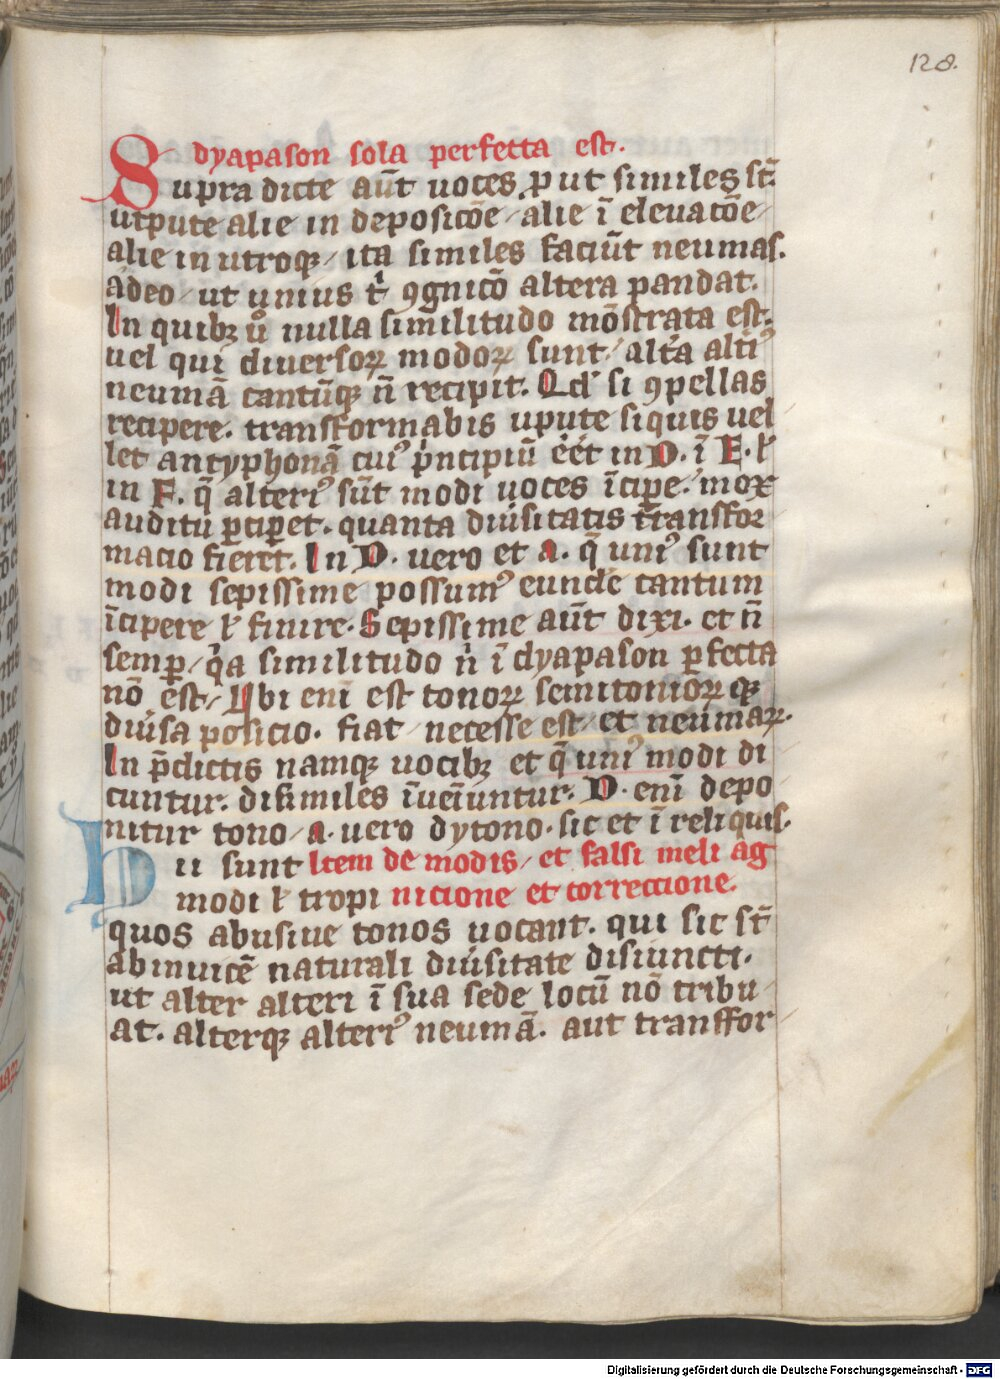 128.
dyapason sola perfecta est.
Supradicte aūt uoces ꝓ ut similes st̄
utpute alie in deposicōe / alie ī eleuatōe /
alie in utroqꝫ / ita similes faciūt neumas.
adeo / ut unius t᷑ ꝯgnicō altera pandat.
In quibꝫ uͦ nulla similitudo mōstrata est.
uel qui diuersoꝝ modoꝝ sunt / alt᷑a alti᷒
neumā cantūqꝫ n̄ recipit. Qd' si ꝯpellas
recipere. transformabis upute siquis uel
let antyphonā cui᷒ p᷑ncipiū eēt in D. ī E. ł
in F. q̄ alteri᷒ sūt modi uoces īcipe. / mox
auditu ꝑcipet. quanta diu᷑sitatis transfor
macio fieret. In D. uero et a. q̄ uni᷒ sunt
modi sepissime possum᷒ eunde cantum
īcipere ł finire. Sepissime aūt dixi. et n̄
semꝑ / q᷑a similitudo n᷑ ī dyapason ꝑfecta
nō est / Ubi eni᷑ est tonoꝝ semitonioꝝ qꝫ
diu᷑sa posicio. fiat / necesse est / et neumaꝝ.
In p̄dictis namqꝫ uocibꝫ et q̄ uni᷒ modi di
cuntur. disimiles īueīuntur. D. eni᷑ depo
nitur tono / a. uero dytono. sic et ī reliquis.
Hii sunt Item de modis / et falsi meli ag
modi ł tropi nicione et correccione.
quos abusiue tonos uocant. qui sic st̄
abinuicē naturali diu᷑sitate disiuncti.
ut alter alteri ī sua sede locū nō tribu
at. alterqꝫ alteri᷒ neumā. aut transfor
Digitalisierung gefördert durch die Deutsche Forschungsgemeinschaft - DFG